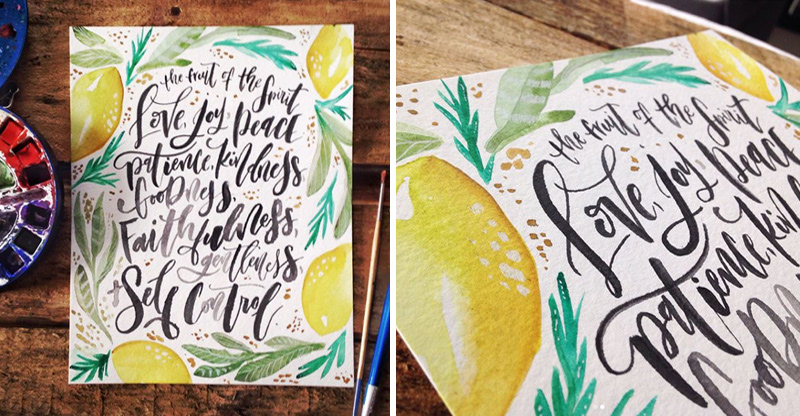 the fruit of the Spirit
Love, Joy, Peace
patience, kindness,
GOODNESS,
Faithfulness,
gentleness,
+ Self Control.
the fruit of the Spirit
Love, Joy, Peace
patience, kin
GOOD